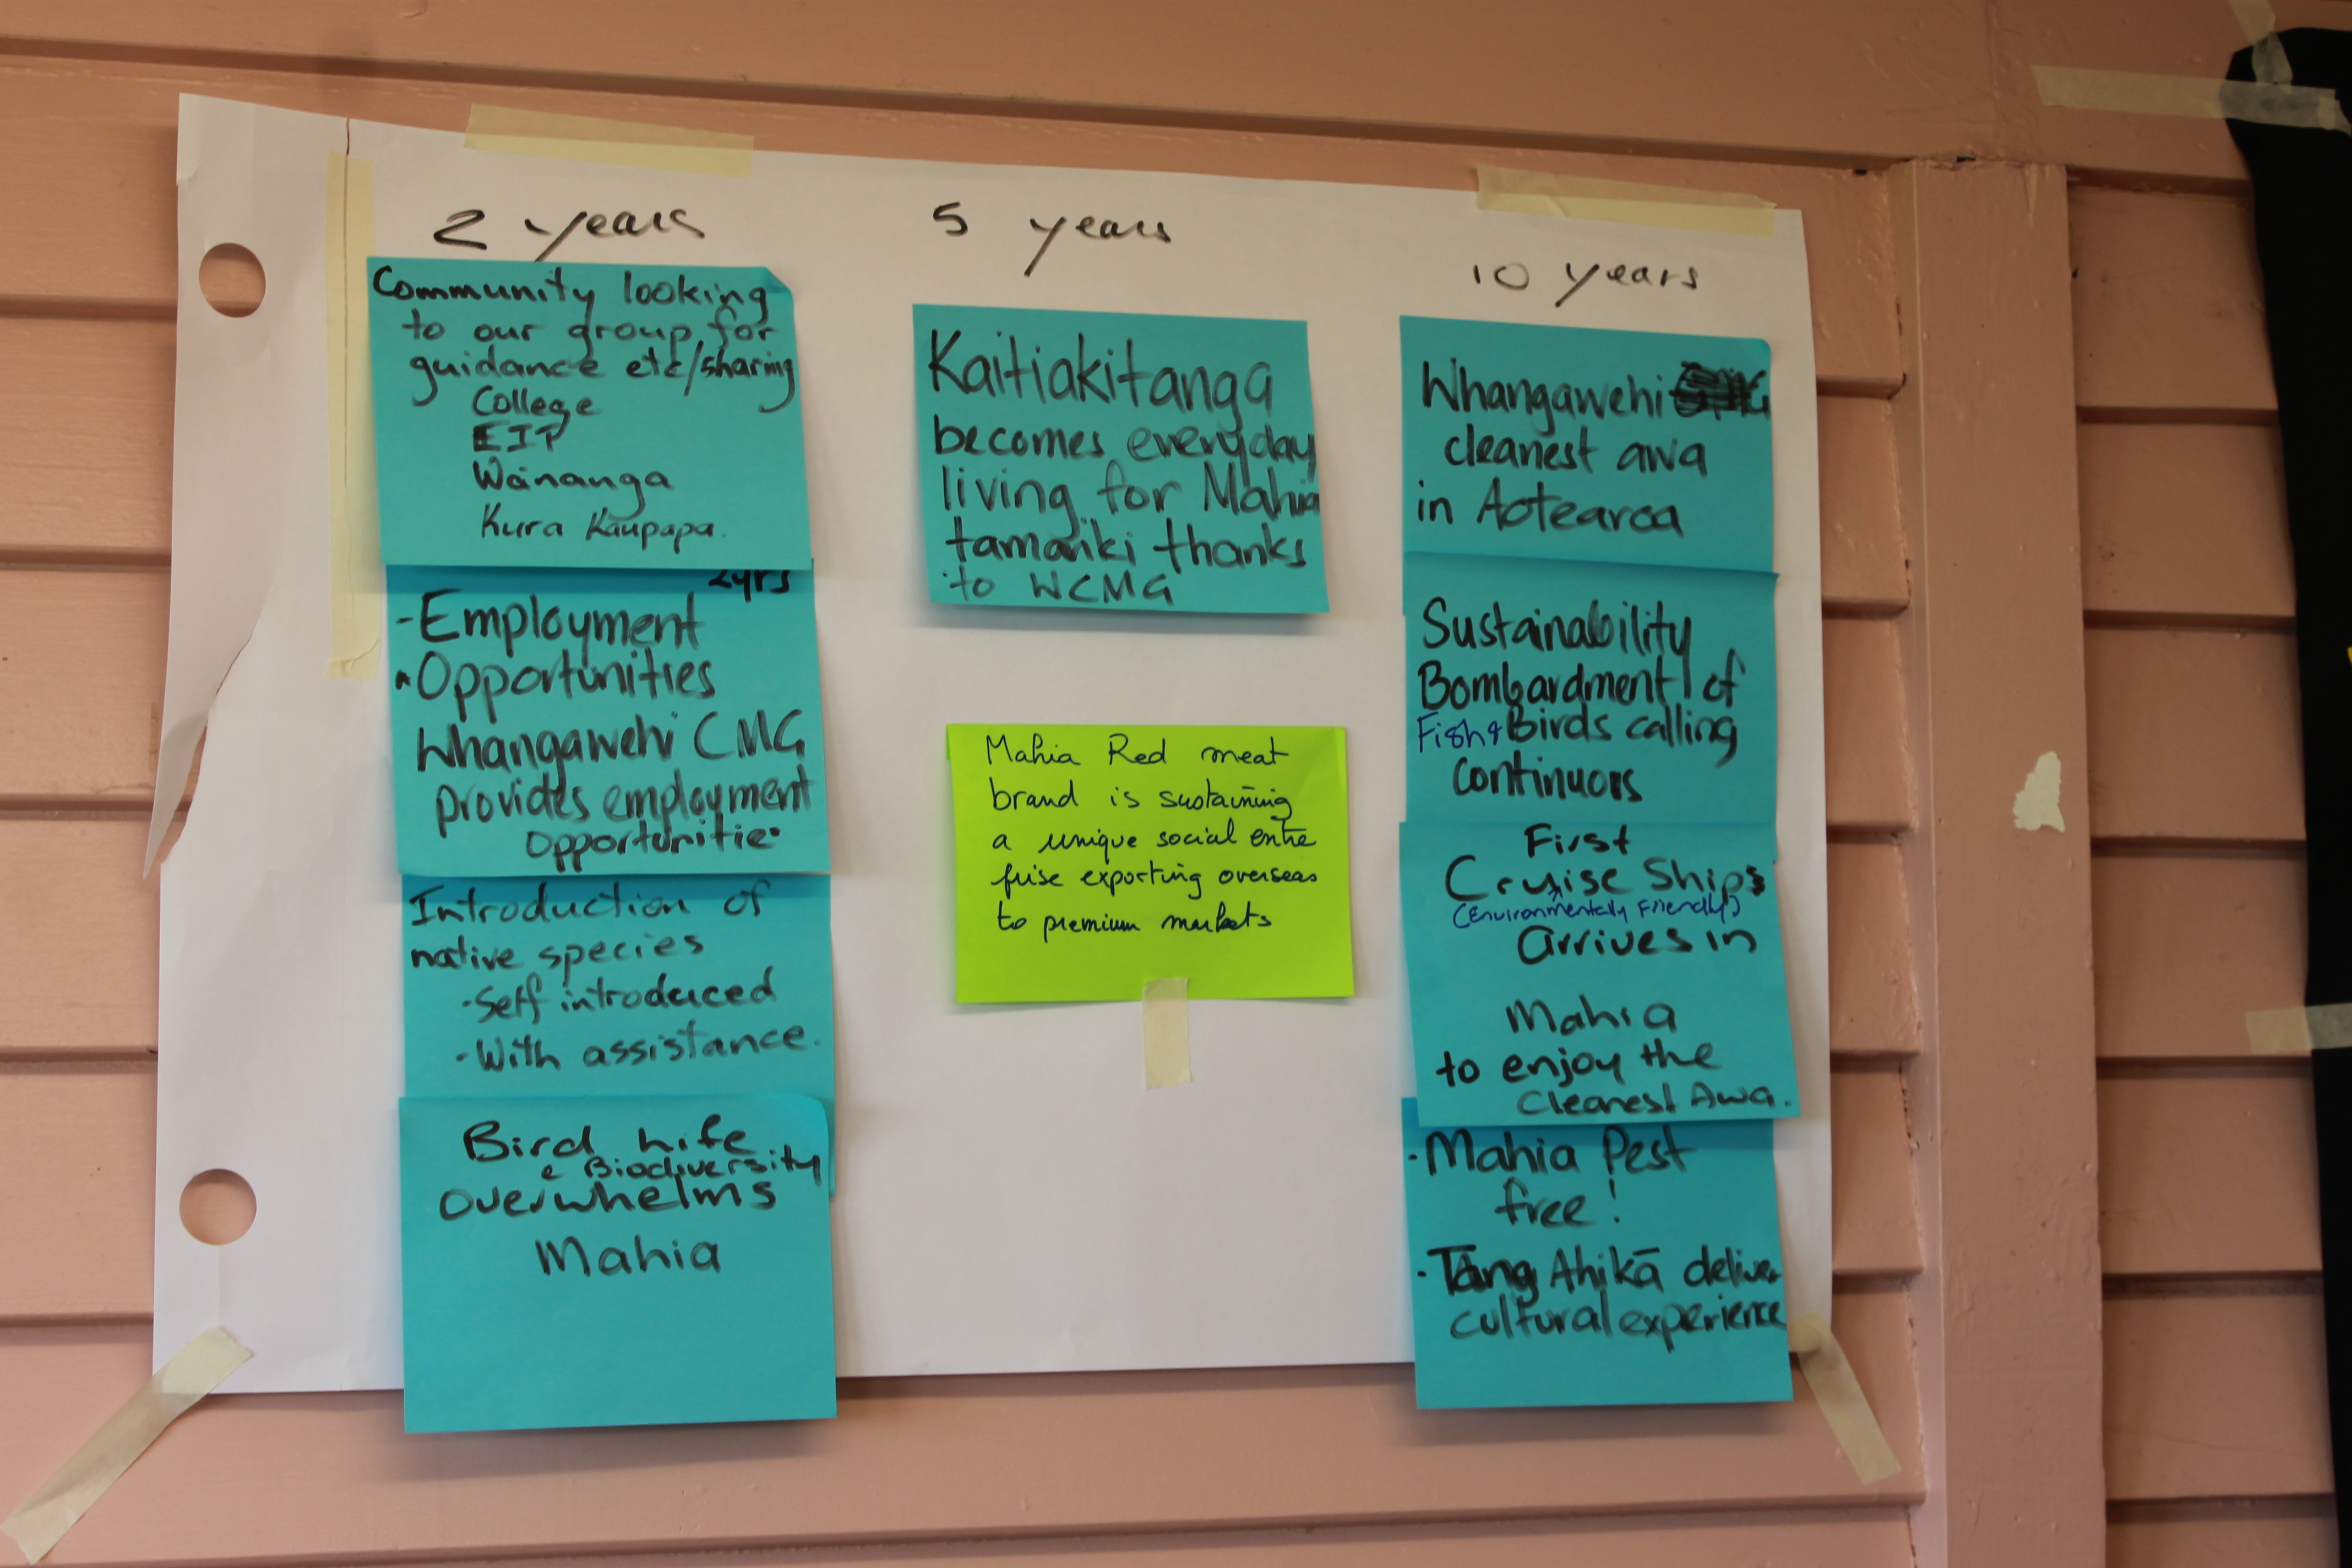 2 years
Community looking
to our group for
guidance etc/sharing
College
EIT
Wānanga
Kura Kaupapa.
2yrs
- Employment
• Opportunities
Whangawehi CMG
provides employment
opportunities
Introduction of
native species
- Self introduced
- With assistance.
Bird Life
& Biodiversity
overwhelms
Mahia
5 years
Kaitiakitanga
becomes everyday
living for Mahia
tamariki thanks
to WCMG
Mahia Red meat
brand is sustaining
a unique social entre
prise exporting overseas
to premium markets
10 years
Whangawehi
cleanest awa
in Aotearoa
Sustainability
Bombardment of
Fish & Birds calling
continuors
First
Cruise Ships
(Environmentally Friendly)
arrives in
Mahia
to enjoy the
cleanest Awa.
• Mahia Pest
free!
• Tāng Ahikā deliver
cultural experience